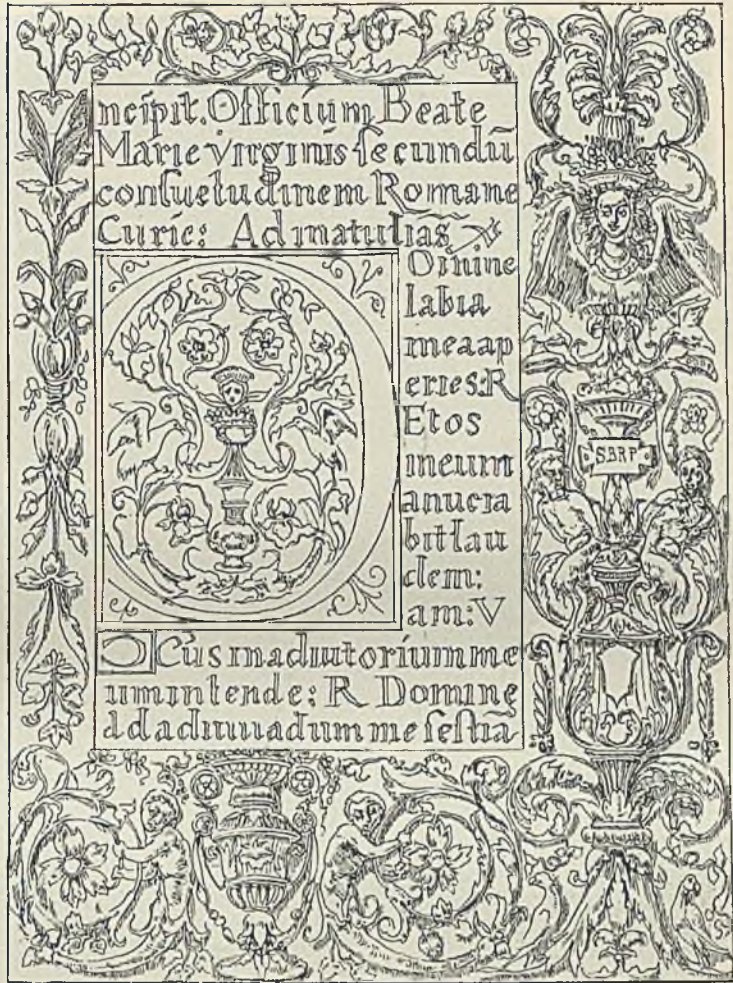 ncipit. Officium Beate
Marie virginis secundū
consuetudinem Romane
Curie: Ad matutīas
Domine
labia
mea ap
eries: R
Et os
meum
anucia
bit lau
dem:
am: V
Deus in adiutorium me
um intende: R Domine
d dadiuuadum me festiā
S.B.R.P.